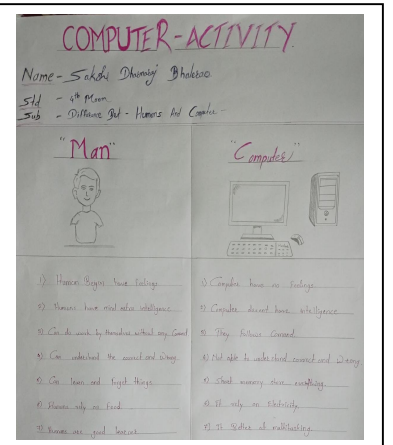 COMPUTER-ACTIVITY
Name - Sakshi
Std - 4th
Sub - Diffrance Bet - Humans And Computer -
"Man"
"Computer"
1) Human Begins have feelings
2) Humans have mind intelligence
3) Can do work by themselves without any
4) Can understand the correct and wrong
5) Can learn and forget things
6) Humans rely on food
7) Humans are good
1) Computer have no feelings
2) Computer doesnt have intelligence
3) They follows
4) Not able to understand correct and wrong
5) memory store everything
6) It rely on Electricity
7) It Better at multitasking